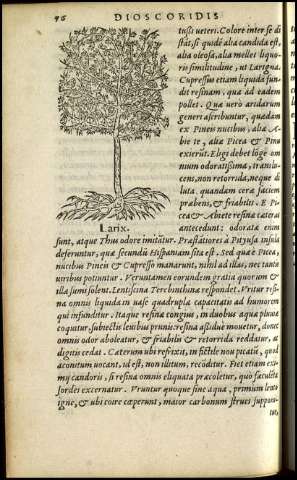 96 DIOSCORIDIS
tussi ueteri. Colore inter se di
stat, si quidē alia candida est,
alia oleosa, alia mellei liquo-
ris similitudine, ut Larigna.
Cupressus etiam liquida fun-
dit resinam, quæ ad eadem
pollet. Quæ uerò aridarum
generi ascribuntur, quædam
ex Pineis nucibus, alia A-
bie te, alia Picea & Pinu
exierūt. Elige debet lōge om
nium odoratissima, translu-
cens, non retorrida, neque di
luta, quandam ceræ faciem
præbens, & friabilis. E Pi-
cea & Abiete resina cæteras
Larix.
antecedunt: odoratæ enim
sunt, atque Thus odore imitātur. Præstātiores à Pityusa insula
deferuntur, quæ secundū Hispaniam sita est. Sed quæ è Picea,
nucibus Pineis & Cupresso manarunt, nihil ad illas, nec tantis
uiribus potiuntur. Veruntamen eorundem gratia quorum &
illæ sumi solent. Lentiscina Terebinthinæ respondet. Vritur resi-
na omnis liquida in uase quadrupla capacitatis ad humorem
qui infunditur. Itaque resinæ congius, in duobus aquæ pluuiæ
coquitur, subiectis leuibus prunis: resina assiduè mouetur, donec
omnis odor aboleatur, & friabilis & retorrida reddatur, ac
digitis cedat. Cæterum ubi refrixit, in fictile non picatū, quod
aconitum uocant, id est, non illitum, recōditur. Fiet etiam exi-
mij candoris, si resina omnis eliquata præcoletur, quò fæculenta
sordes excernatur. Vruntur quoque sine aqua, primùm leuis
igne, & ubi coire cœperunt, maior carbonum strues supponi-
tur,